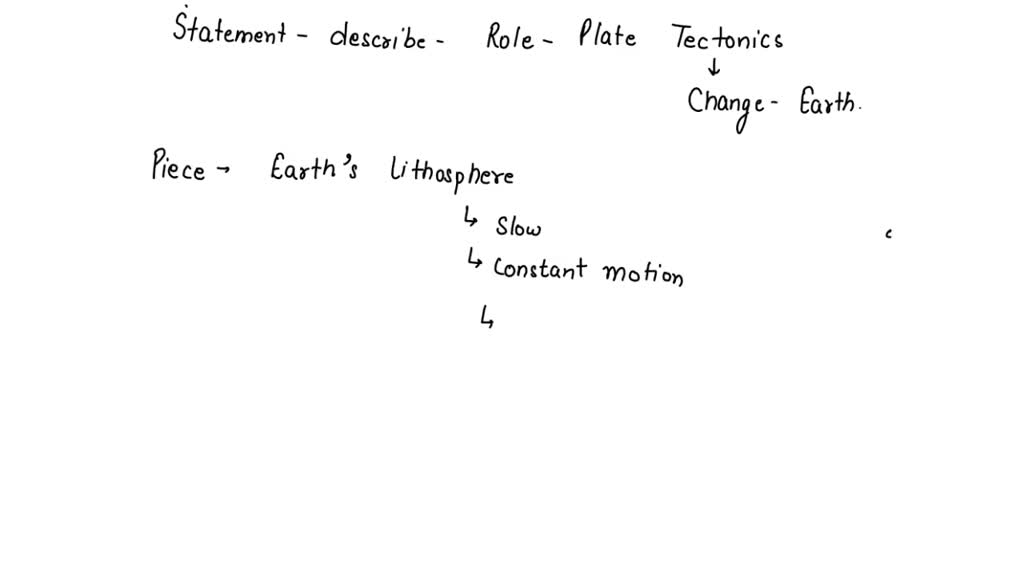 Statement - describe - Role - Plate Tectonics
↓
Change - Earth.
Piece → Earth's lithosphere
↳ Slow
↳ Constant motion
↳
c